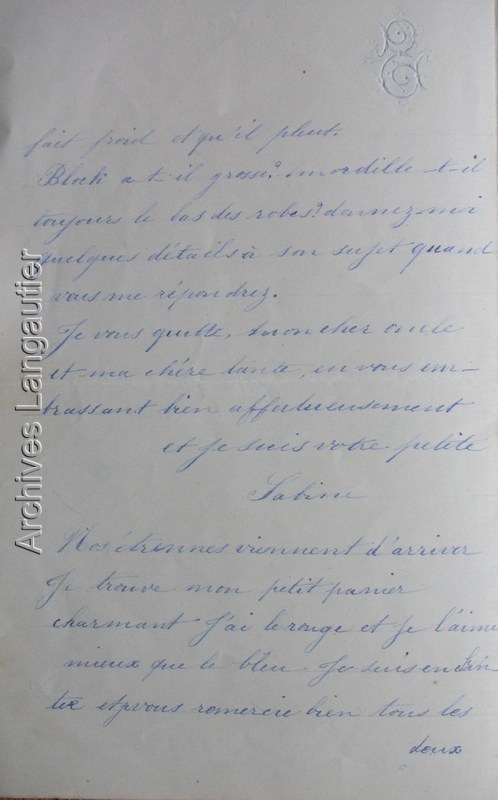 fait froid et qu'il pleut.
Black a-t-il grossi? mordille-t-il
toujours le bas des robes? donnez-moi
quelques détails à son sujet quand
vous me répondrez.
Je vous quitte, mon cher oncle
et ma chère tante, en vous em-
brassant bien affectueusement
et je suis votre petite
Sabine
Nos étrennes viennent d'arriver
Je trouve mon petit panier
charmant J'ai le rouge et je l'aime
mieux que le bleu. Je suis en
et vous remercie bien tous les
deux
Archives Langautier